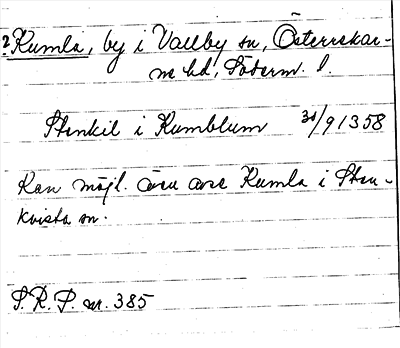 ? Kumla, by i Vallby sn, Österrekar-
ne hd, Söderm. l.
Stenkil i Kumblum 30/9 1358
Kan möjl. även avse Kumla i Sten-
kvista sn.
S. R. P. nr. 385